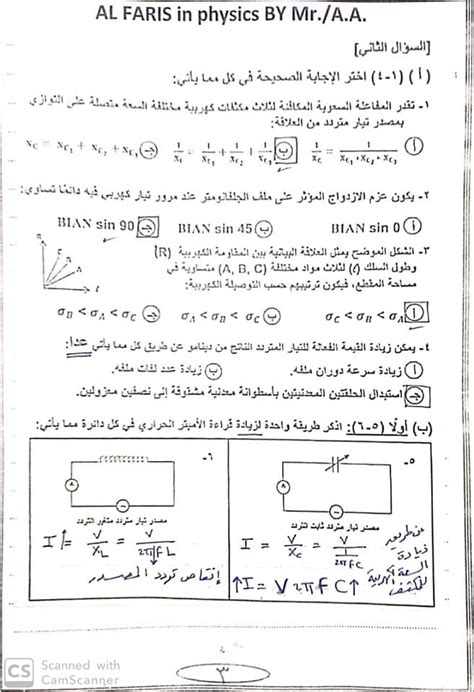 AL FARIS in physics BY Mr./A.A.
[السؤال الثاني]
( أ ) (١-٤) اختر الإجابة الصحيحة في كل مما يأتي:
١- تقدر المفاعلة السعوية المكافئة لثلاث مكثفات كهربية مختلفة السعة متصلة على التوازي
بمصدر تيار متردد من العلاقة:
أ 1/Xc = 1/(Xc₁+Xc₂+Xc₃) ب 1/Xc = 1/Xc₁ + 1/Xc₂ + 1/Xc₃ جـ Xc = Xc₁ + Xc₂ + Xc₃
٢- يكون عزم الازدواج المؤثر على ملف الجلفانومتر عند مرور تيار كهربي فيه دائمًا تساوي:
أ BIAN sin 0 ب BIAN sin 45 جـ BIAN sin 90
٣- الشكل الموضح يمثل العلاقة البيانية بين المقاومة الكهربية (R)
وطول السلك (ℓ) لثلاث مواد مختلفة (A, B, C) متساوية في
مساحة المقطع، فيكون ترتيبهم حسب التوصيلة الكهربية:
R
C
B
A
ℓ
أ σC < σB < σA ب σA < σB < σC جـ σB < σA < σC
٤- يمكن زيادة القيمة الفعالة للتيار المتردد الناتج من دينامو عن طريق كل مما يأتي عدا:
أ زيادة سرعة دوران ملفه. ب زيادة عدد لفات ملفه.
جـ استبدال الحلقتين المعدنيتين بأسطوانة معدنية مشقوقة إلى نصفين معزولين.
(ب) أولًا (٥-٦): اذكر طريقة واحدة لزيادة قراءة الأميتر الحراري في كل دائرة مما يأتي:
٥-
A
مصدر تيار متردد ثابت التردد
I = V/Xc = V/(1/2πfC)
↑I = V 2πf C↑
عن طريق
زيادة
السعة الكهربية
للمكثف
٦-
A
مصدر تيار متردد متغير التردد
I↑ = V/XL = V/2πfL
إنقاص تردد المصدر
٣
CS Scanned with
CamScanner